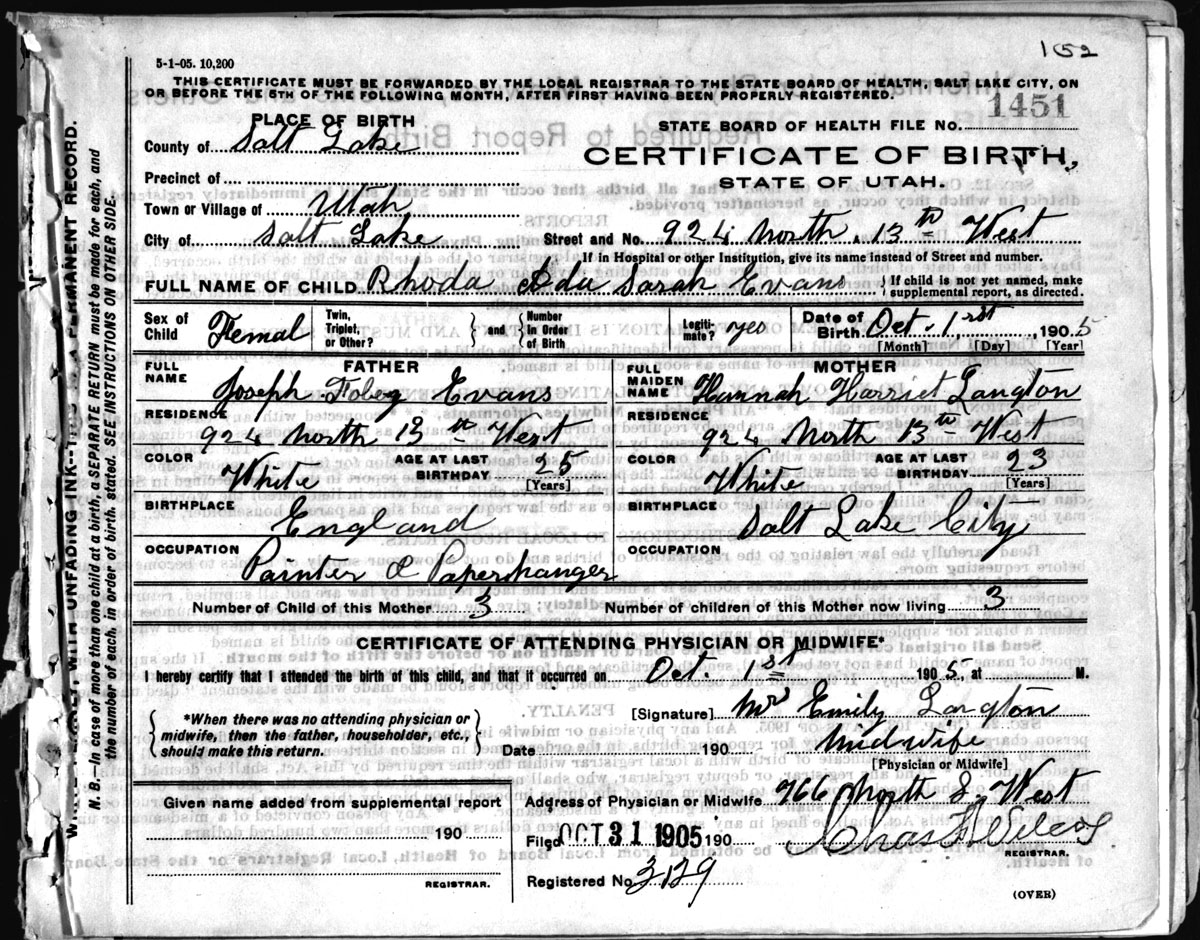 152
5-1-05. 10,200
THIS CERTIFICATE MUST BE FORWARDED BY THE LOCAL REGISTRAR TO THE STATE BOARD OF HEALTH, SALT LAKE CITY, ON
OR BEFORE THE 5TH OF THE FOLLOWING MONTH, AFTER FIRST HAVING BEEN PROPERLY REGISTERED.
PLACE OF BIRTH
STATE BOARD OF HEALTH FILE NO. 1451
County of Salt Lake
CERTIFICATE OF BIRTH,
Precinct of
STATE OF UTAH.
Town or Village of Utah
City of Salt Lake Street and No. 924 North 13th West
If in Hospital or other Institution, give its name instead of Street and number.
FULL NAME OF CHILD Rhoda Ada Sarah Evans { If child is not yet named, make supplemental report, as directed.
Sex of Child Femal Twin, Triplet, or Other? } and { Number in Order of Birth Legitimate? yes Date of Birth Oct. 1rst, 1905
[Month] [Day] [Year]
FATHER MOTHER
FULL NAME Joseph Tobey Evans FULL MAIDEN NAME Hannah Harriet Langton
RESIDENCE 924 North 13th West RESIDENCE 924 North 13th West
COLOR White AGE AT LAST BIRTHDAY 25 [Years] COLOR White AGE AT LAST BIRTHDAY 23 [Years]
BIRTHPLACE England BIRTHPLACE Salt Lake City
OCCUPATION Painter & Paperhanger OCCUPATION
Number of Child of this Mother 3 Number of children of this Mother now living 3
CERTIFICATE OF ATTENDING PHYSICIAN OR MIDWIFE*
I hereby certify that I attended the birth of this child, and that it occurred on Oct. 1st 1905, at M.
{ *When there was no attending physician or midwife, then the father, householder, etc., should make this return. }
[Signature] Mrs Emily Langton
Date 190 Midwife
[Physician or Midwife]
Given name added from supplemental report
190
REGISTRAR.
Address of Physician or Midwife 966 North West
Filed OCT 31 1905 190
REGISTRAR.
Registered No. 3129
(OVER)
WITH UNFADING INK--THIS IS A PERMANENT RECORD.
N. B.—In case of more than one child at a birth, a SEPARATE RETURN must be made for each, and
the number of each, in order of birth, stated. SEE INSTRUCTIONS ON OTHER SIDE.